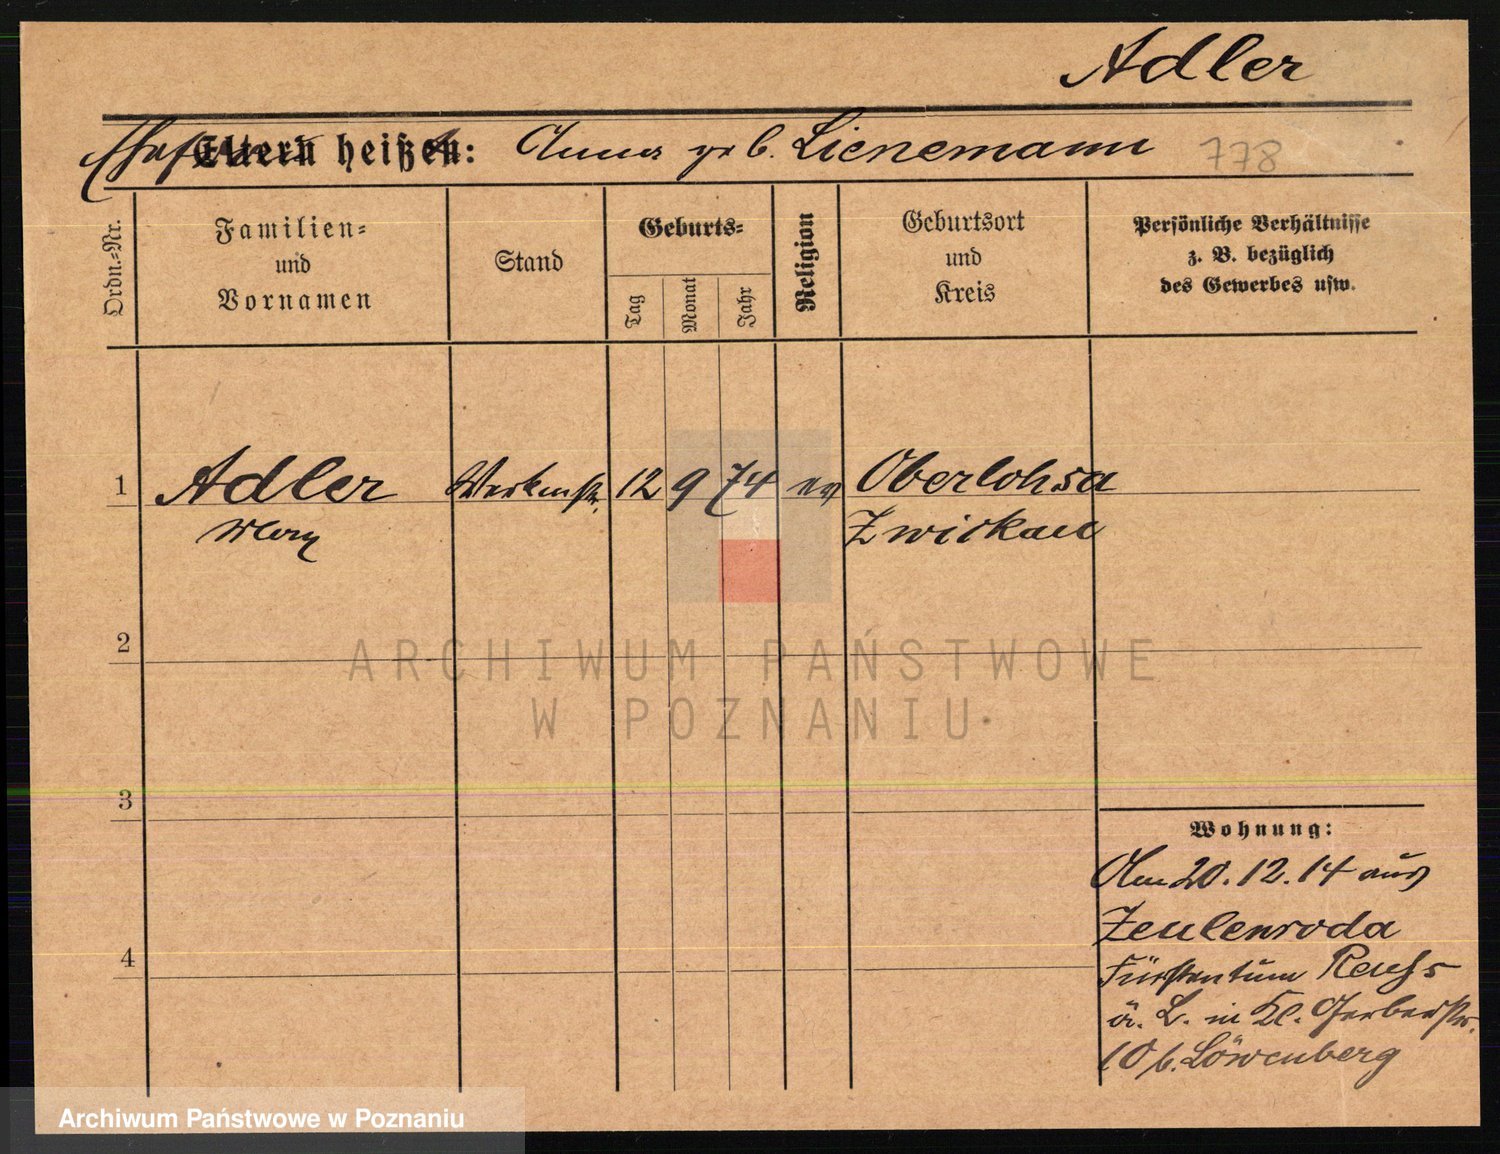 Adler
Ehefrau Eltern heißen: Anna geb. Lienemann 778
Ordn.-Nr.
Familien-
und
Vornamen
Stand
Geburts-
Tag
Monat
Jahr
Religion
Geburtsort
und
Kreis
Persönliche Verhältnisse
z. B. bezüglich
des Gewerbes usw.
1 Adler 12 9 74 ev Oberlohsa
Max Zwickau
2
ARCHIWUM PAŃSTWOWE
W POZNANIU
3
Wohnung:
Am 20.12.14 aus
Zeulenroda
4
Fürstentum Reuß
ä. L. in Kl. Gerberstr.
10 b. Löwenberg
Archiwum Państwowe w Poznaniu